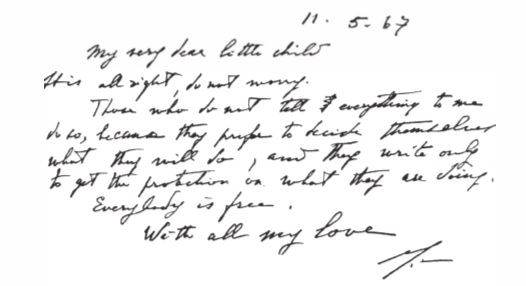 11. 5. 67
My very dear little child
It is all right, do not worry.
Those who do not tell everything to me
do so, because they prefer to decide themselves
what they will do, and they write only
to get the protection on what they are doing.
Everybody is free.
With all my love